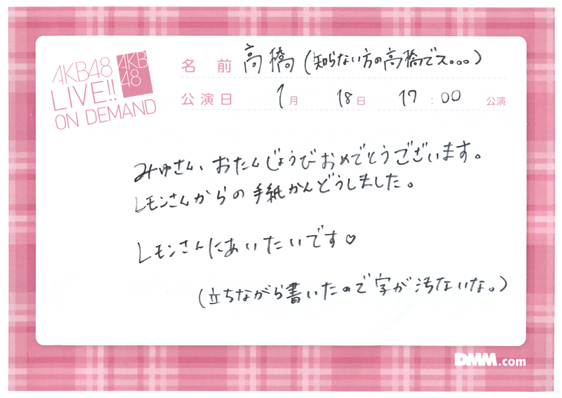 AKB48
LIVE!!
ON DEMAND
AKB
48
名 前 高橋(知らない方の高橋でス。。。)
公演日 1月 18日 17:00 公演
みゆさん、おたんじょうびおめでとうございます。
レモンさんからの手紙かんどうしました。
レモンさんにあいたいです♡
(立ちながら書いたので字が汚ないな。)
DMM.com